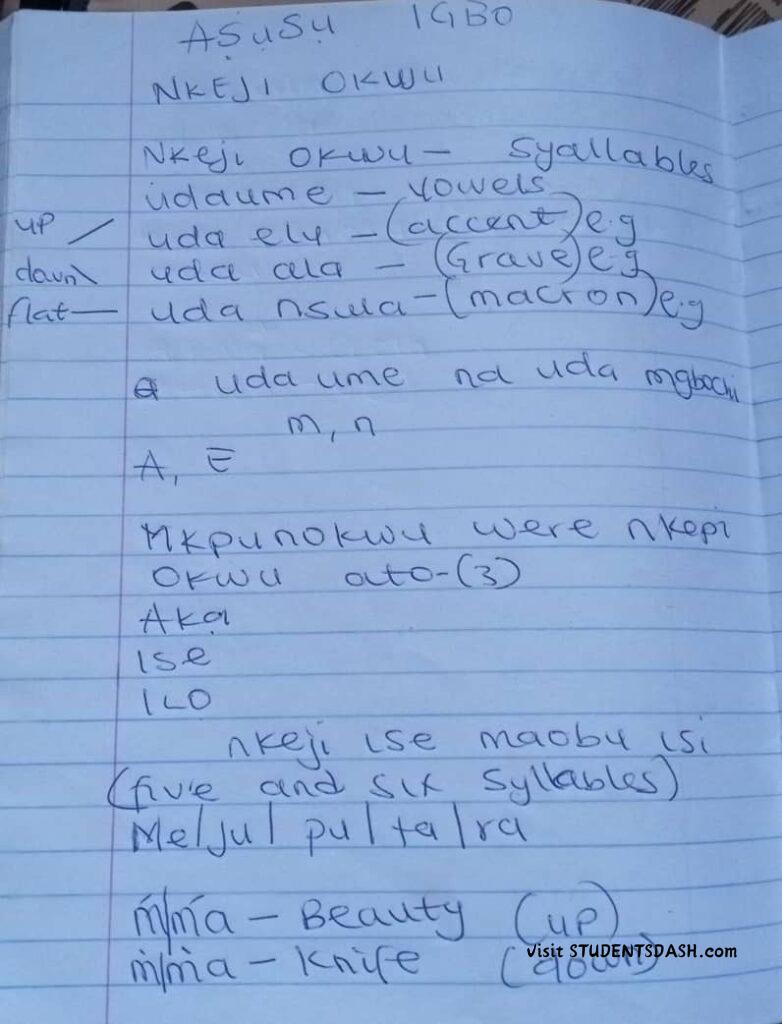 ASụSụ IGBO
NKEJI OKWU
Nkeji okwu - syallables
udaume - vowels
up / uda elu - (accent) e.g
down \ uda ala - (Grave) e.g
flat — uda nsuda - (macron) e.g
uda ume na uda mgbochi
m, n
A, E
Mkpunokwu were nkepi
okwu ato - (3)
Aka
Ise
ILO
nkeji ise maobu isi
(five and six syllables)
Me/ju/ pu/ta/ra
ḿ/ḿa - Beauty (up)
Visit STUDENTSDASH.com
ṁ/ṁa - knife (down)